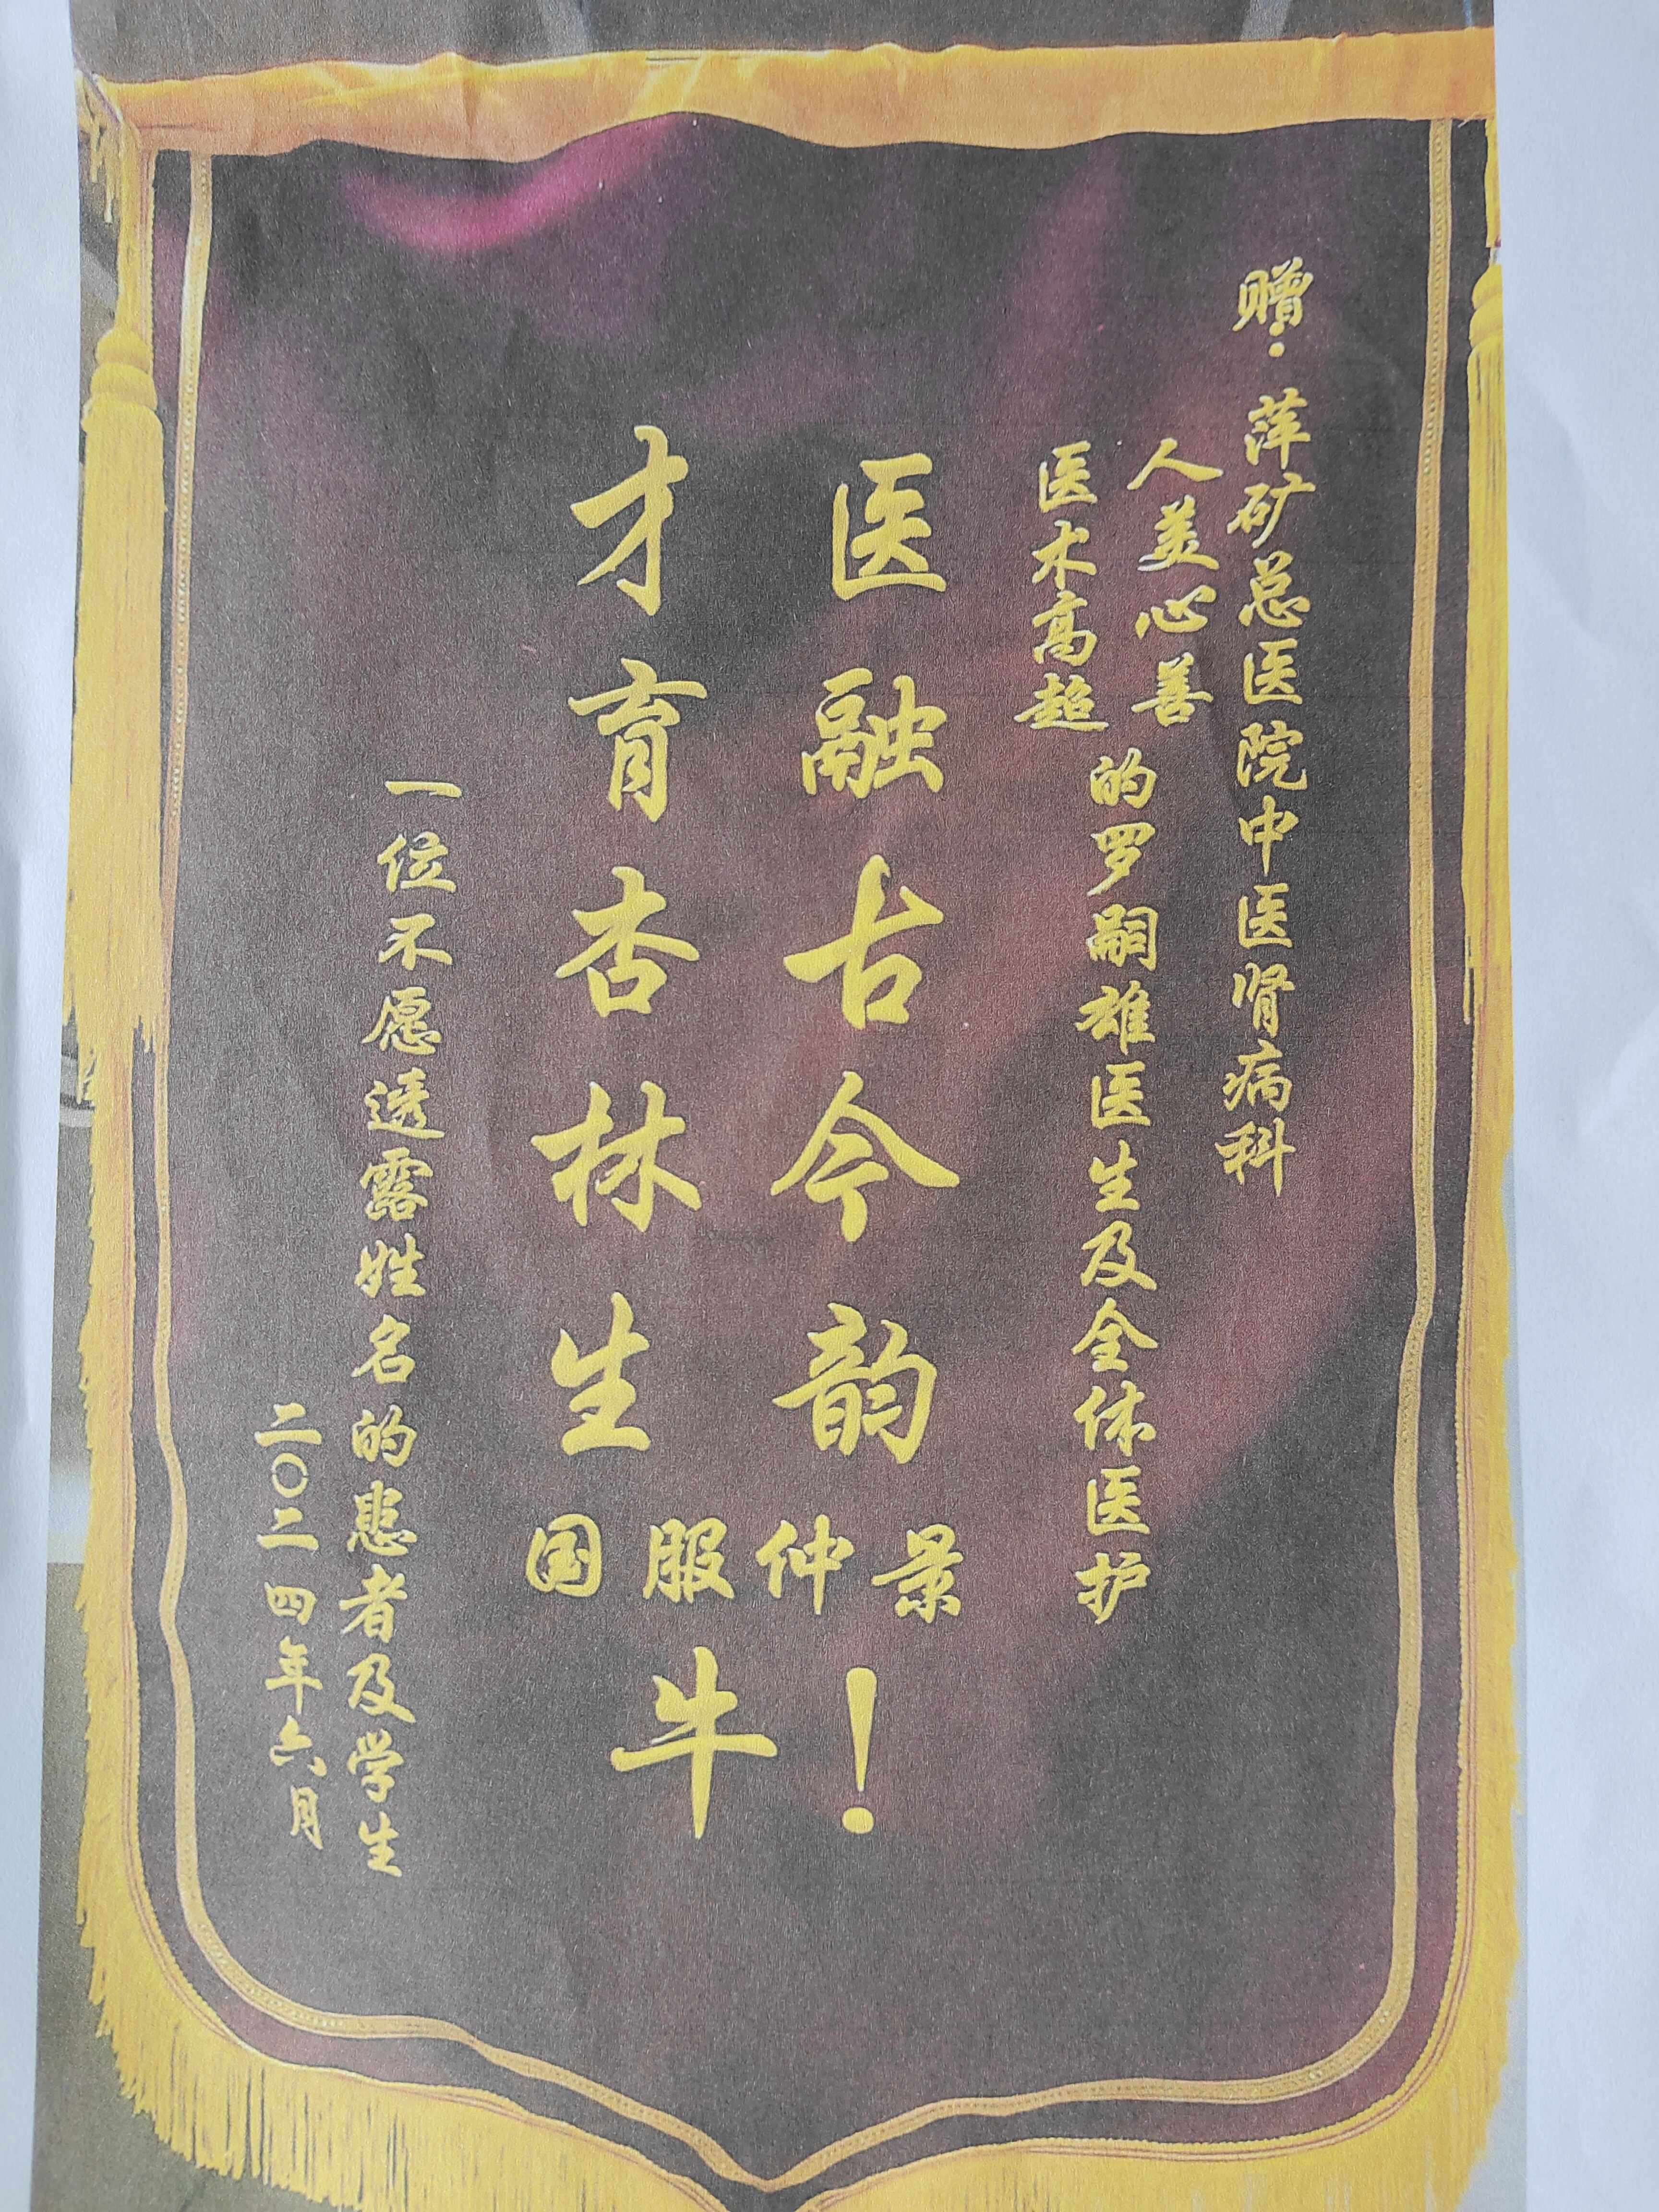 赠：萍矿总医院中医肾病科
人美心善
医术高超
的罗嗣雄医生及全体医护
医融古今韵
才育杏林生
国服仲景
牛！
一位不愿透露姓名的患者及学生
二〇二四年六月